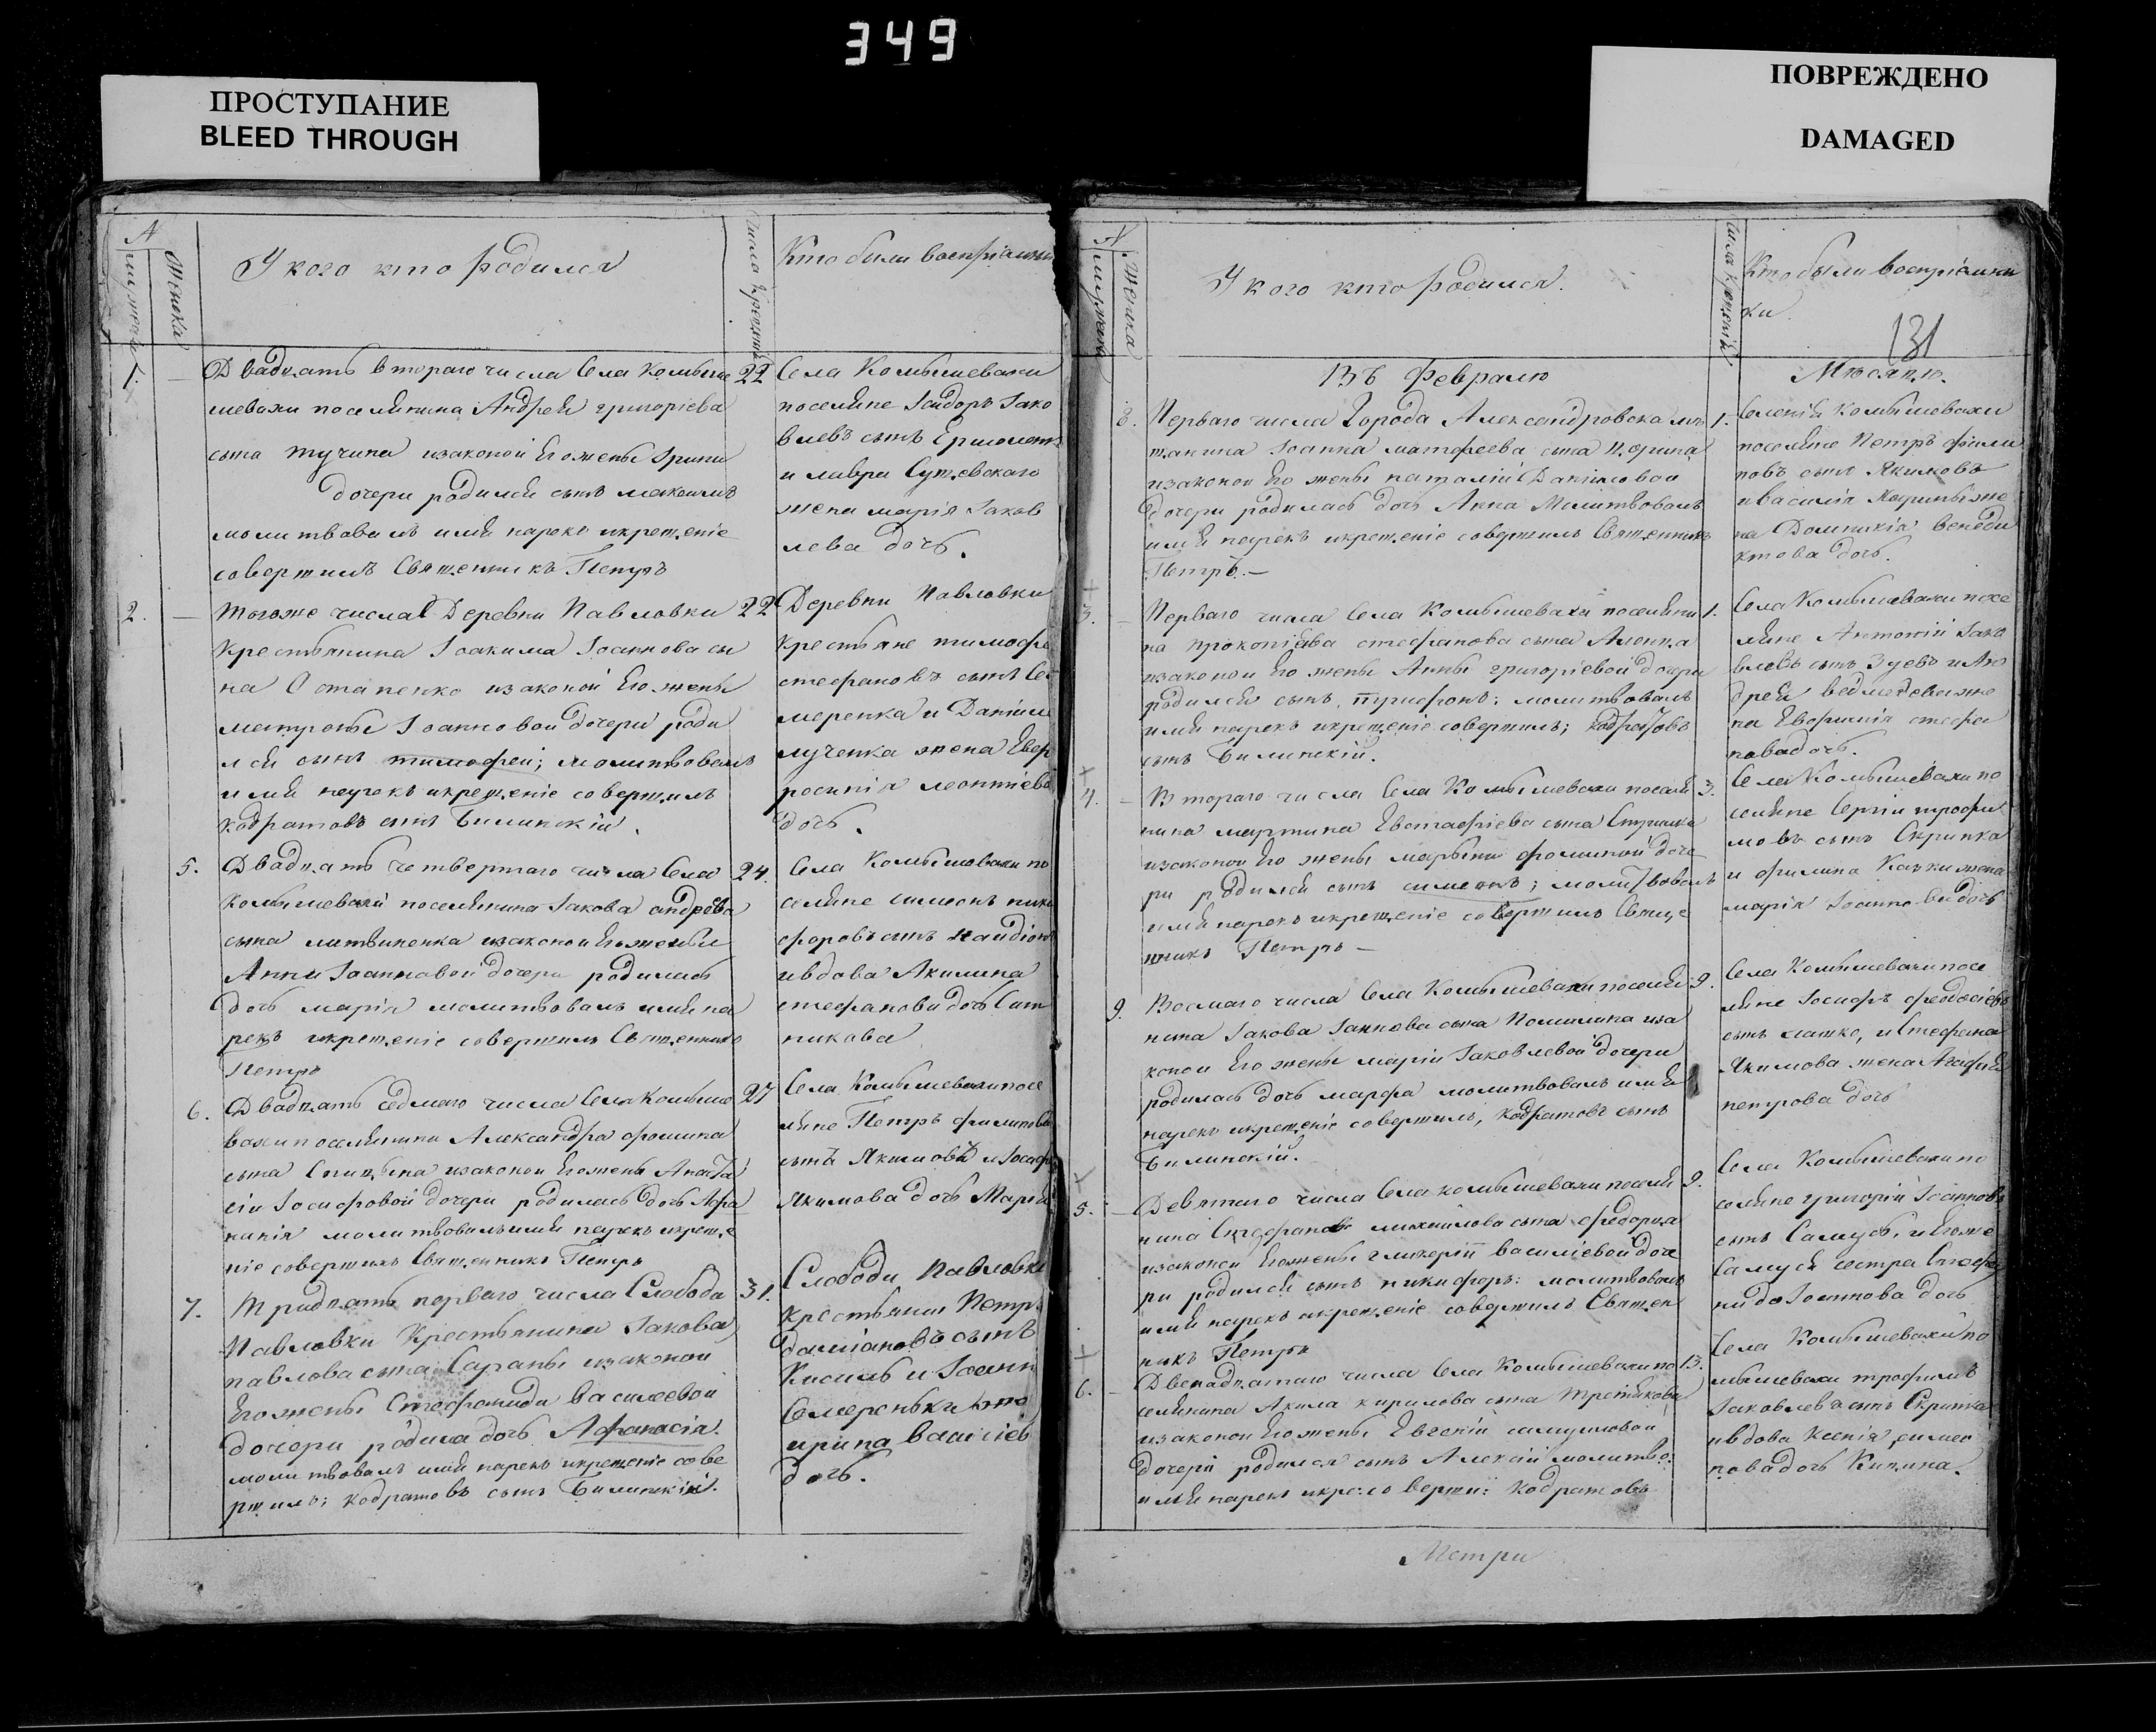 349
ПРОСТУПАНИЕ
BLEED THROUGH
ПОВРЕЖДЕНО
DAMAGED
№
Женска
У кого кто родился
Число крещенія
Кто были воспріемни
1.
Двадцать втораго числа Села Комыше
шевахи поселянина Андрея григоріева
сына тучина изаконой Его жены Ірини
дочери родился сынъ максимъ
молитвовалъ имя нарекъ икрещеніе
совершилъ Священникъ Петръ
22
Села Комышевахи
поселяне Ісидоръ Іако
влевъ сынъ
и лавра
жена марія Іаков
лева дочь.
2.
Тогоже числа Деревни Павловки
крестьянина Іоакима Іоаннова сы
на Остапенко изаконой Его жены
матроны Іоанновой дочери роди
лся сынъ тимофей; молитвовалъ
имя нарекъ икрещеніе совершилъ
кодратовъ сынъ Билинскій.
22
Деревни Павловки
крестьяне тимофе
стефановъ сынъ Се
меренка и Даніил
лученка жена Евф
росинія леонтіева
дочь.
5.
Двадцать четвертаго числа Села
комышевахи поселянина Іакова андреева
сына литвиненка изаконой Его жены
Анни Іоанновой дочери родилась
дочь марія молитвовалъ имя на
рекъ икрещеніе совершилъ Священникъ
Петръ
24.
Села Комышевахи по
селяне симеонъ ники
форовъ сынъ
ивдова Акилина
стефанова дочь Сат
никова
6.
Двадцать седмаго числа Села Комыше
вахи поселянина Александра фомина
сына изаконой Его жены Анаста
сіи Іосифовой дочери родилась дочь
молитвовалъ имя нарекъ икреще
ніе совершилъ Священникъ Петръ
27
Села Комышевахи посе
ляне Петръ филипов
сынъ Якимовъ и Іосиф
Якимова дочь Марія
7.
Тридцать перваго числа Слободы
Павловки Крестьянина Іакова
павлова сына Сараны изаконой
Его жены Стефаниды василевой
дочери родила дочь Афанасія.
молитвовалъ имя нарекъ икрещеніе сове
ршилъ; кодратовъ сынъ Билинскій.
31.
Слободи Павловки
крестьяни Петръ
даміановъ сынъ
Кисиль и Іоанн
Семереньки
ирина василіев
дочь.
№
Женска
У кого кто родился.
Числа крещенія
Кто были воспріемни
ки.
131
Въ Февралю
Мѣсяцѣ.
2.
Перваго числа Города Александровска мѣ
щанина Іоанна матфеева сына
изаконой Его жены наталіи Даниловой
дочери родилась дочь Анна Молитвовалъ
имя нарекъ икрещеніе совершилъ Священникъ
Петръ.—
1.
Селенія Комышевахи
поселяне Петръ фили
повъ сынъ Якимовъ
ивасилія же
на Домникія венеди
ктова дочь.
3.
Перваго числа Села Комышевахи поселяни
на прокопіева стефанова сына
изаконой Его жены Анны григоріевой дочери
родился сынъ трифонъ: молитвовалъ
имя нарекъ икрещеніе совершилъ; кодратовъ
сынъ Билинскій.
1.
Села Комышевахи посе
ляне Антоній Іако
влевъ сынъ Зуевъ и Ан
дрея же
на Евфимія стефа
нова дочь.
4.
Втораго числа Села Комышевахи поселя
нина мартина Евстафіева сына
изаконой Его жены марыни фоминой доче
ри родился сынъ симеонъ; молитвовалъ
имя нарекъ икрещеніе совершилъ Свяще
нникъ Петръ—
3.
Села Комышевахи по
селяне Сергій трофи
мовъ сынъ Скрипка
и филипа жена
марія Іоаннова дочь
9.
Восмаго числа Села Комышевахи поселя
нина Іакова Іаннова сына иза
коной Его жены маріи Іаковлевой дочери
родилась дочь марфа молитвовалъ имя
нарекъ икрещеніе совершилъ, кодратовъ сынъ
Билинскій.
9.
Села Комышевахи посе
ляне Іосифъ феодосіевъ
сынъ латко, и Стефана
Якимова жена Агафія
петрова дочь
5.
Девятаго числа Села комышевахи поселя
нина Стефанова михайлова сына
изаконой Его жены гликеріи василіевой доче
ри родился сынъ никифоръ: молитвовалъ
имя нарекъ икрещеніе совершилъ Священ
никъ Петръ
9.
Села Комышевахи по
селяне григорій Іоанновъ
сынъ Самусь, и Его же
Самуся сестра Стефа
нида Іоаннова дочь
6.
Двенадцатаго числа Села Комышевахи по
селянина Акила кирилова сына Третякова
изаконой Его жены Евгеніи самуиловой
дочери родился сынъ Алексій молитво:
имя нарекъ икре: соверши: Кодратовъ
13.
Села Комышевахи по
мышевахи трофимъ
Іаковлевъ сынъ Скрипка
ивдова Ксенія симео
нова дочь
Метри